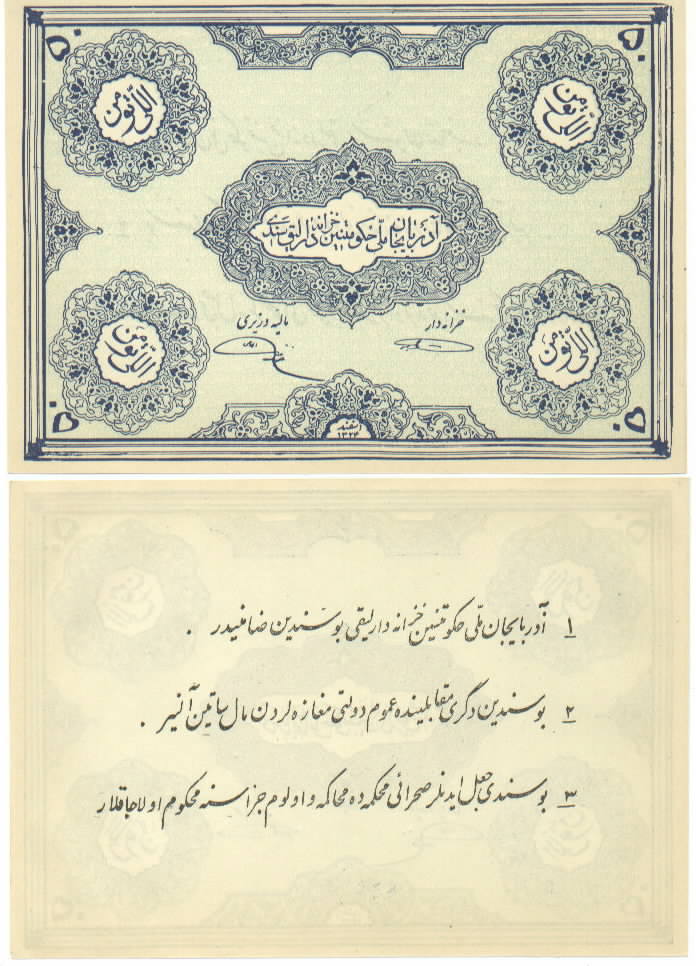 ۵۰
۵۰
اللی تومن
اللی تومن
آذربایجان ملی حکومتینین خزانه دارلیق سندی
خزانه دار
مالیه وزیری
اللی تومن
اللی تومن
سنه
۱۳۲۴
۵۰
۵۰
۱ آذربایجان ملی حکومتینین خزانه دارلیقی بو سندین ضامنیدر .
۲ بو سندین دگری مقابلینده عموم دولتی مغازه لردن مال ساتین آلنیر .
۳ بو سندی جعل ایدنلر صحرائی محکمه ده محاکمه و اولوم جزاسنه محکوم اولاجاقلار